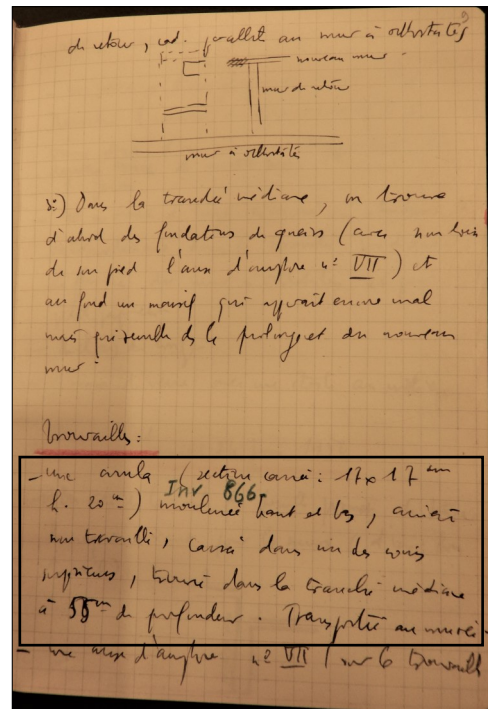 9
de retour, càd. parallèle au mur à orthostates
nouveau mur
mur de retour
mur à orthostates
3:) Dans la tranchée médiane, on trouve
d'abord des fondations de quais (avec non loin
de son pied l'anse d'amphore nº VII) et
au fond un massif qui apparaît encore mal
mais qui semble ds le prolongt du nouveau
mur.
Trouvailles:
- une arula (section carrée: 17 x 17 cm
h. 20 cm) moulurée haut et bas, arrière
Inv 866
non travaillé, cassé dans un des coins
supérieurs, trouvé dans la tranchée médiane
à 55 cm de profondeur. Transportée au musée.
- une anse d'amphore nº VII (sur la trouvaille